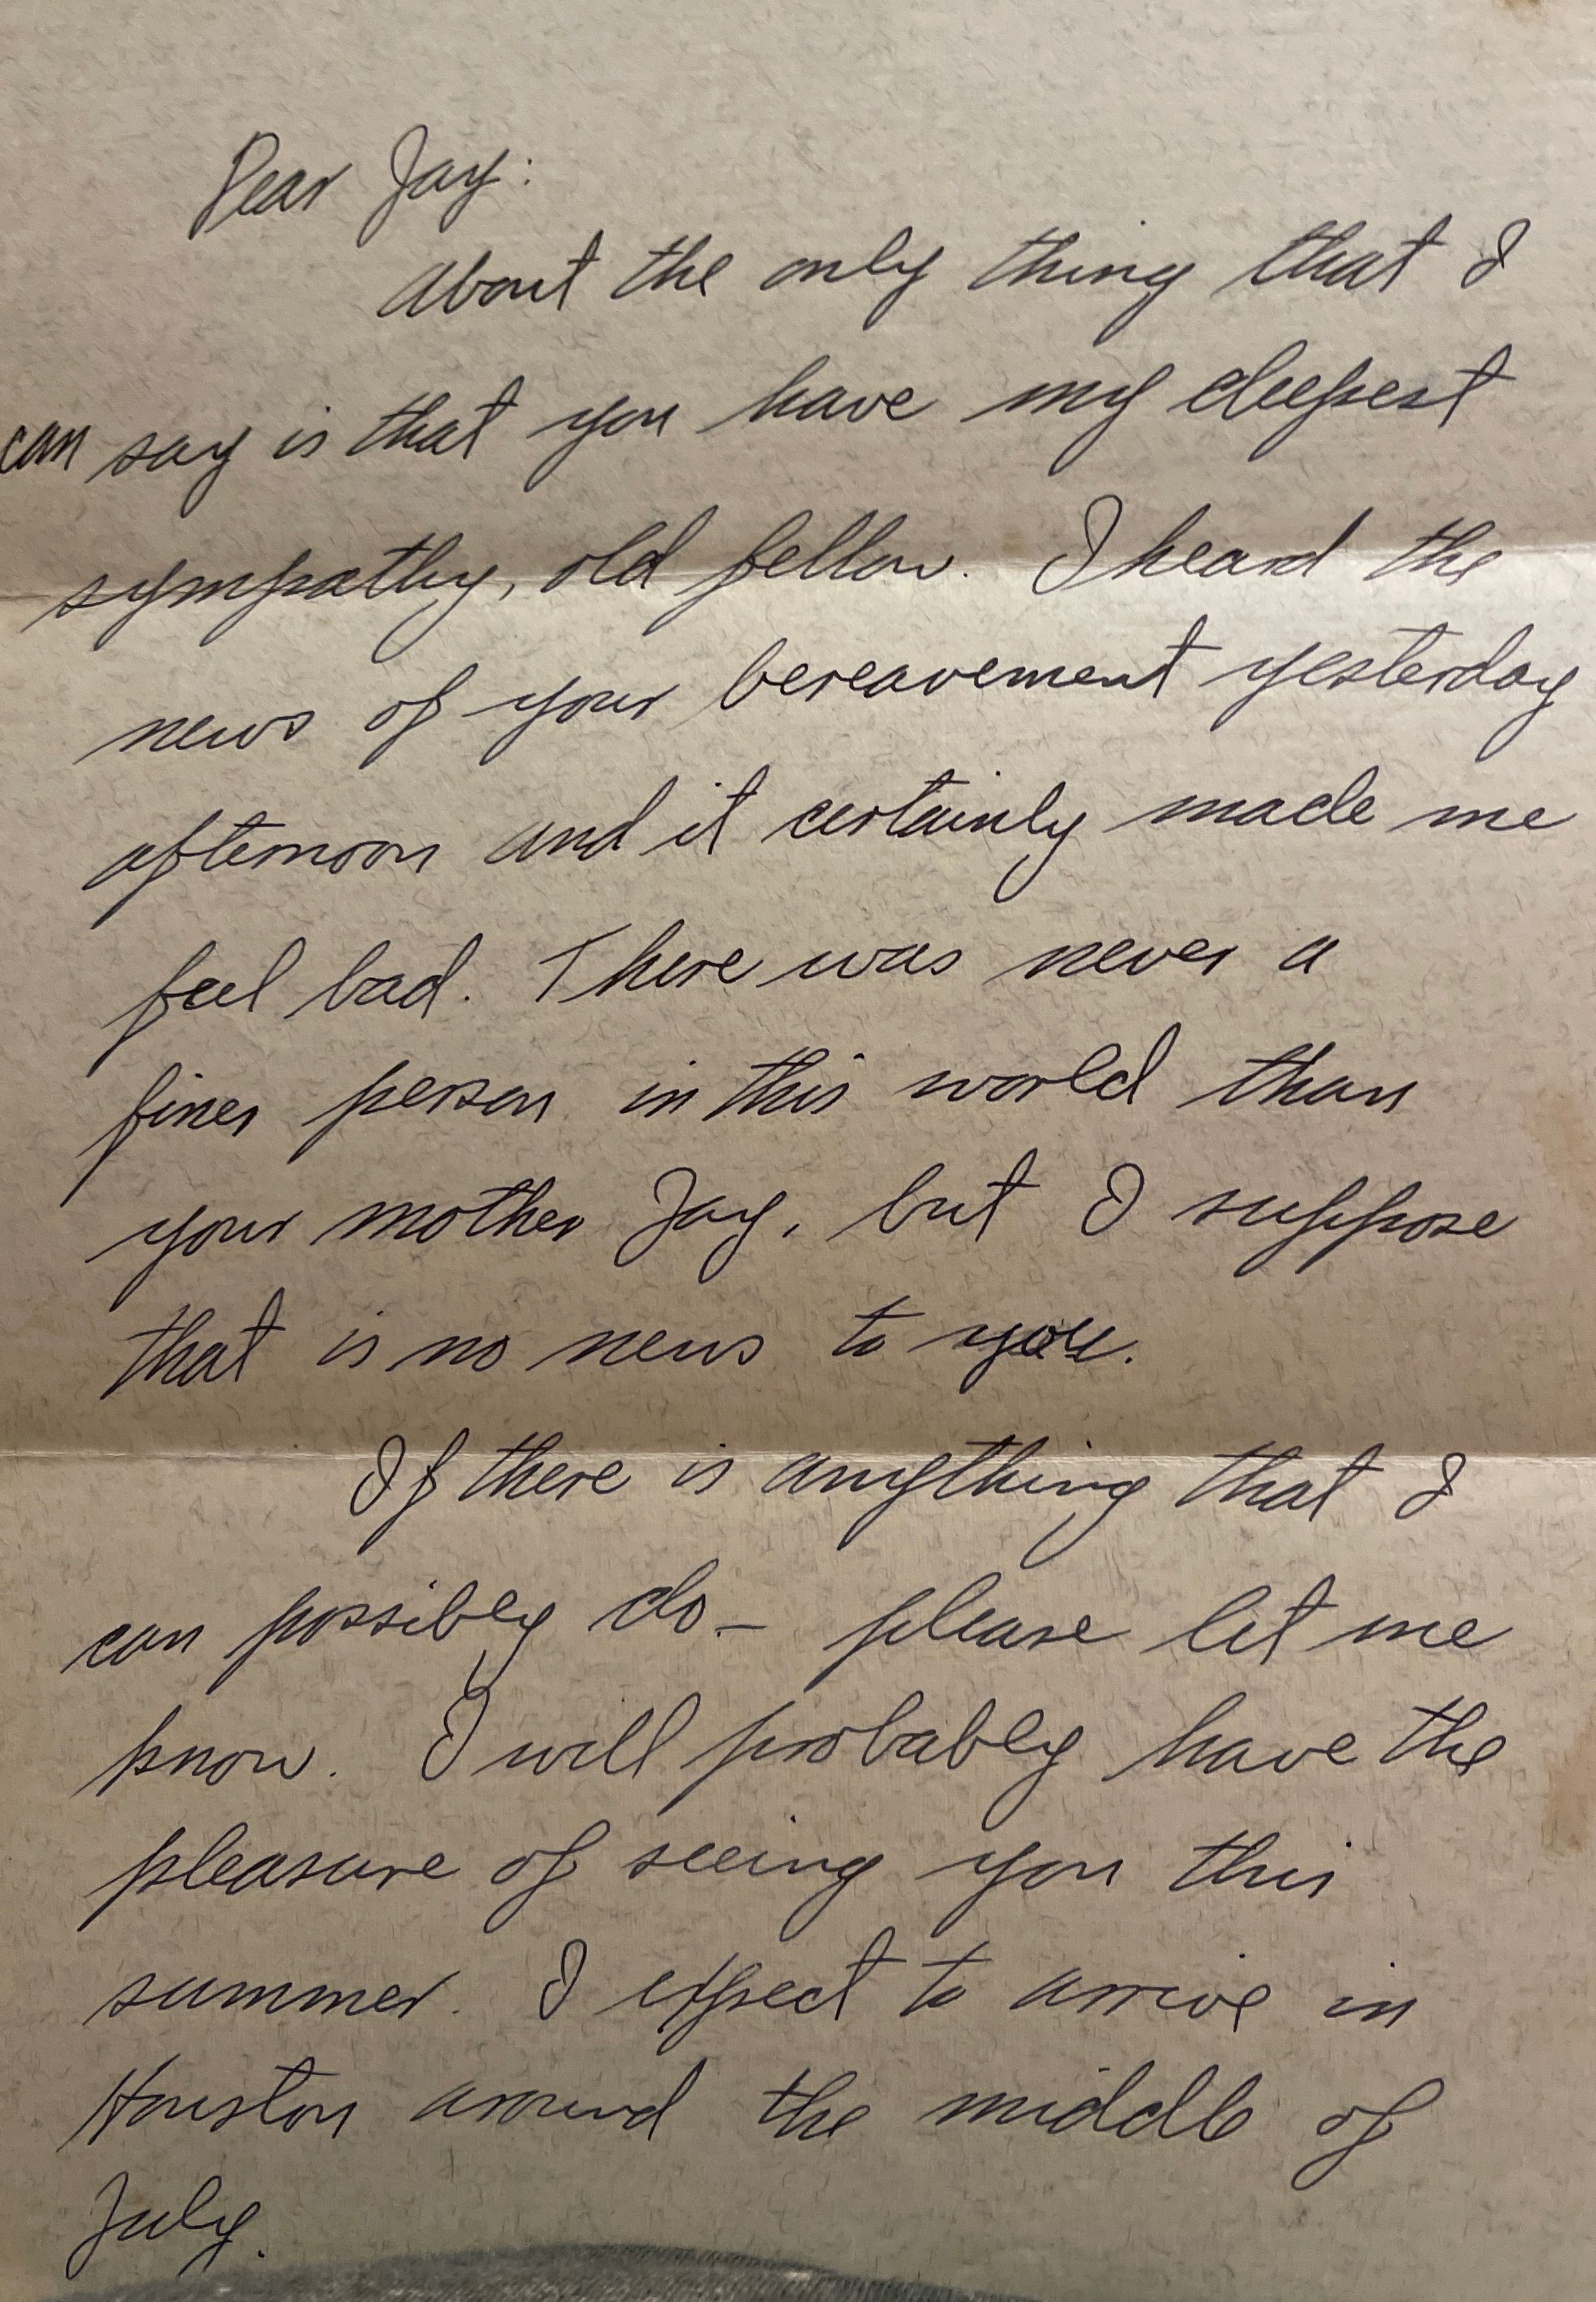 Dear Jay:
About the only thing that I
can say is that you have my deepest
sympathy, old fellow. I heard the
news of your bereavement yesterday
afternoon and it certainly made me
feel bad. There was never a
finer person in this world than
your mother Jay, but I suppose
that is no news to you.
If there is anything that I
can possibly do - please let me
know. I will probably have the
pleasure of seeing you this
summer. I expect to arrive in
Houston around the middle of
July.